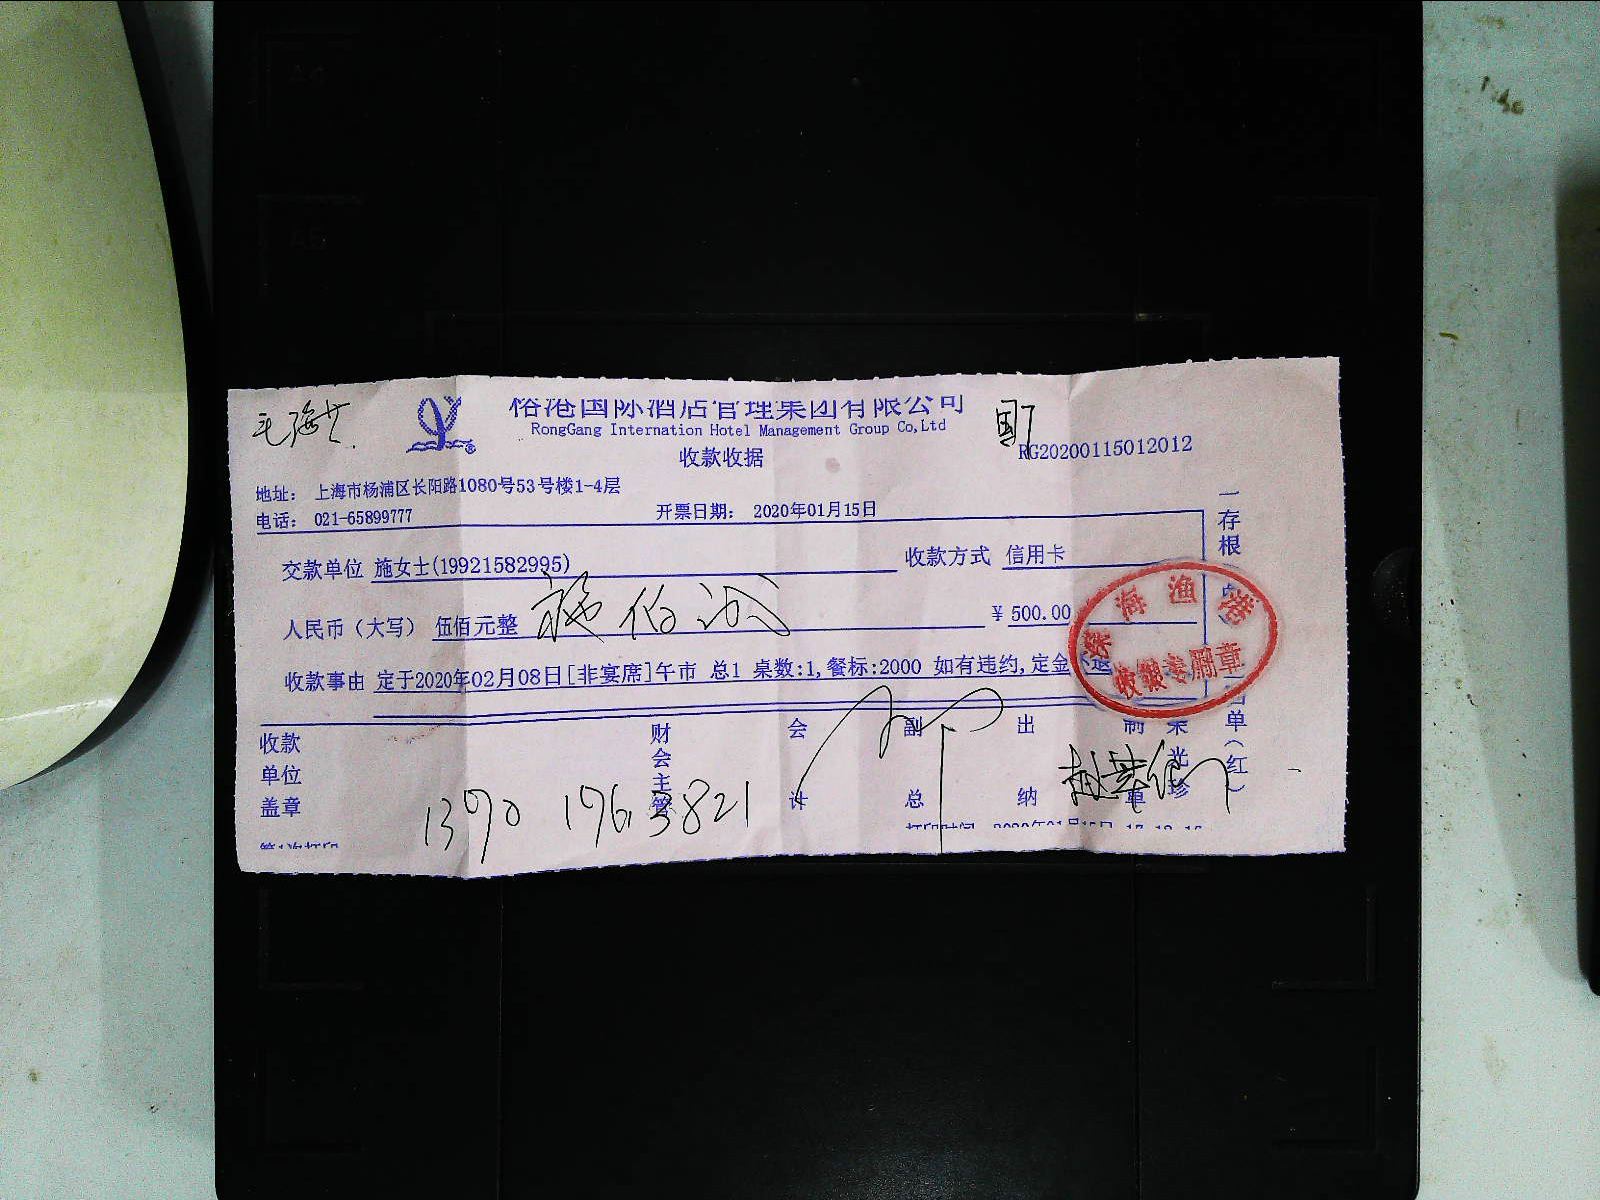 毛海芷
榕港国际酒店管理集团有限公司
RongGang Internation Hotel Management Group Co,Ltd
收款收据
RG20200115012012
地址： 上海市杨浦区长阳路1080号53号楼1-4层
电话： 021-65899777 开票日期： 2020年01月15日
交款单位 施女士(19921582995) 收款方式 信用卡
人民币（大写） 伍佰元整 ¥ 500.00
收款事由 定于2020年02月08日[非宴席]午市 总1 桌数:1,餐标:2000 如有违约,定金不退
深海渔港
收银专用章
收款单位盖章 财会主管 会计 副总 出纳 制单 荣光珍
1390 1763821
第1次打印 打印时间 2020年01月15日
一存根 单（红）